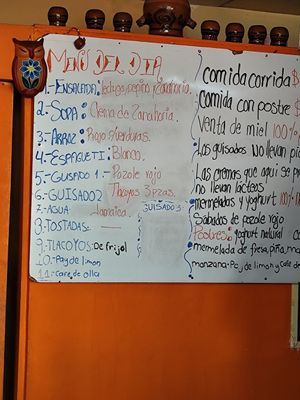 MENÚ DEL DIA
1-ENSALADA: lechuga pepino y zanahoria.
2-SOPA: Crema de Zanahoria.
3-ARROZ: Rojo c/verduras.
4-ESPAGUETI: Blanco.
5-GUSADO 1.- Pozole rojo
6-GUISADO2 Tlacoyos 3 pzas.
7-AGUA Jamaica.
GUISADO 3
8-TOSTADAS:
9-TLACOYOS: De frijol
10-Pay de limon
11-Cafe de olla
comida corrida $
Comida con postre $
Venta de miel 100%
Los guisados No llevan
Las cremas que aqui se
no llevan lacteos
mermeladas y yoghurt 100%
Sabados de pozole rojo
Postres: yoghurt natural
mermelada de fresa, piña,
manzana-Pay de limon y Cafe de